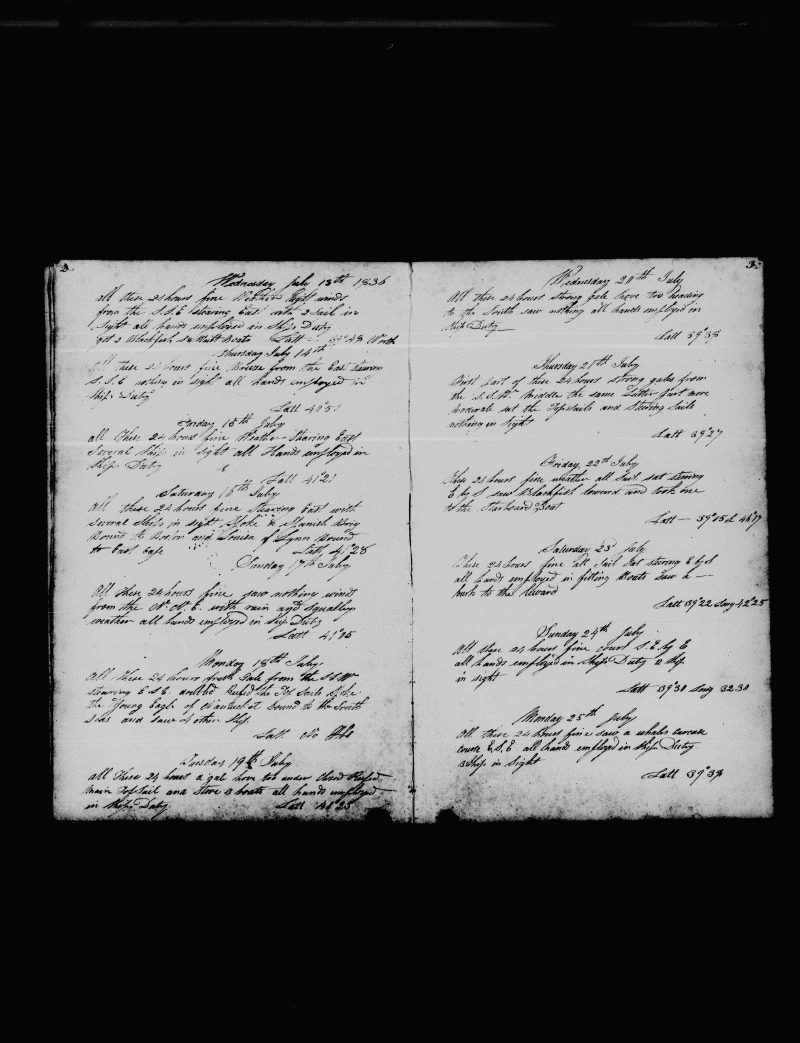 2.
Wednesday July 13th 1836
all these 24 hours fine Weather light winds
from the S.S.E stearing East with 2 Sail in
Sight all hands employed in Ships Duty
got 2 Blackfish Boats Latt - 39°48 North
Thursday July 14th
All these 24 hours fine breeze from the East
S.S.E nothing in Sight all hands employed in
Ships Duty
Latt 40°5
Friday 15th July
all these 24 hours fine Weather Staring East
Several Ships in sight all Hands employed in
Ships Duty
Latt 41°21
Saturday 16th July
All these 24 hours fine Stearing East with
several Ships in sight Spoke a Spanish Brig
Bound to and Louisa of Lynn Bound
to East Cape Latt, 41°28
Sunday 17th July
All these 24 hours fine saw nothing winds
from the N.N.E. with rain and Squally
weather all hands employed in Ships Duty
Latt 41°05
Monday 18th July
All these 24 hours fresh Gale from the SSW
Stearing E S E. doubled Reefd the Top Sails Spoke
the Young Eagle of Nantucket bound to the South
Seas and Saw 4 other Ships
Latt No Obs
Tuesday 19th July
all these 24 hours a gale hove too under Close Reefed
main Top Sail and Stove 3 boats all hands employed
in Ships Duty Latt 41°23
3.
Wednesday 20th July
All these 24 hours strong gale hove too heading
to the South saw nothing all hands employed in
Ships Duty
Latt 39°38
Thursday 21st July
First Part of these 24 hours strong gales from
the S.S.W. Middle the same Latter Part more
Moderate set the Topsails and Steering Sails
nothing in Sight
Latt 39°27
Friday 22d July
These 24 hours fine weather all Sail sat steering
E by S saw Blackfish lowered and took one
to the Starboard Boat
Latt — 39°05 L 46°17
Saturday 23d July
These 24 hours fine all Sail Sat steering E by S
all hands employed in fitting Boats saw a —
bark to the
Latt 39°22 Long 42°25
Sunday 24th July
All these 24 hours fine course S.E. by E
all hands employed in Ships Duty 2 Ships
in Sight
Latt 39°30 Long 32.30
Monday 25th July
All these 24 hours fine saw a whales carcase
course E.S.E all hands employed in Ships Duty
3 Ships in Sight
Latt 39°38